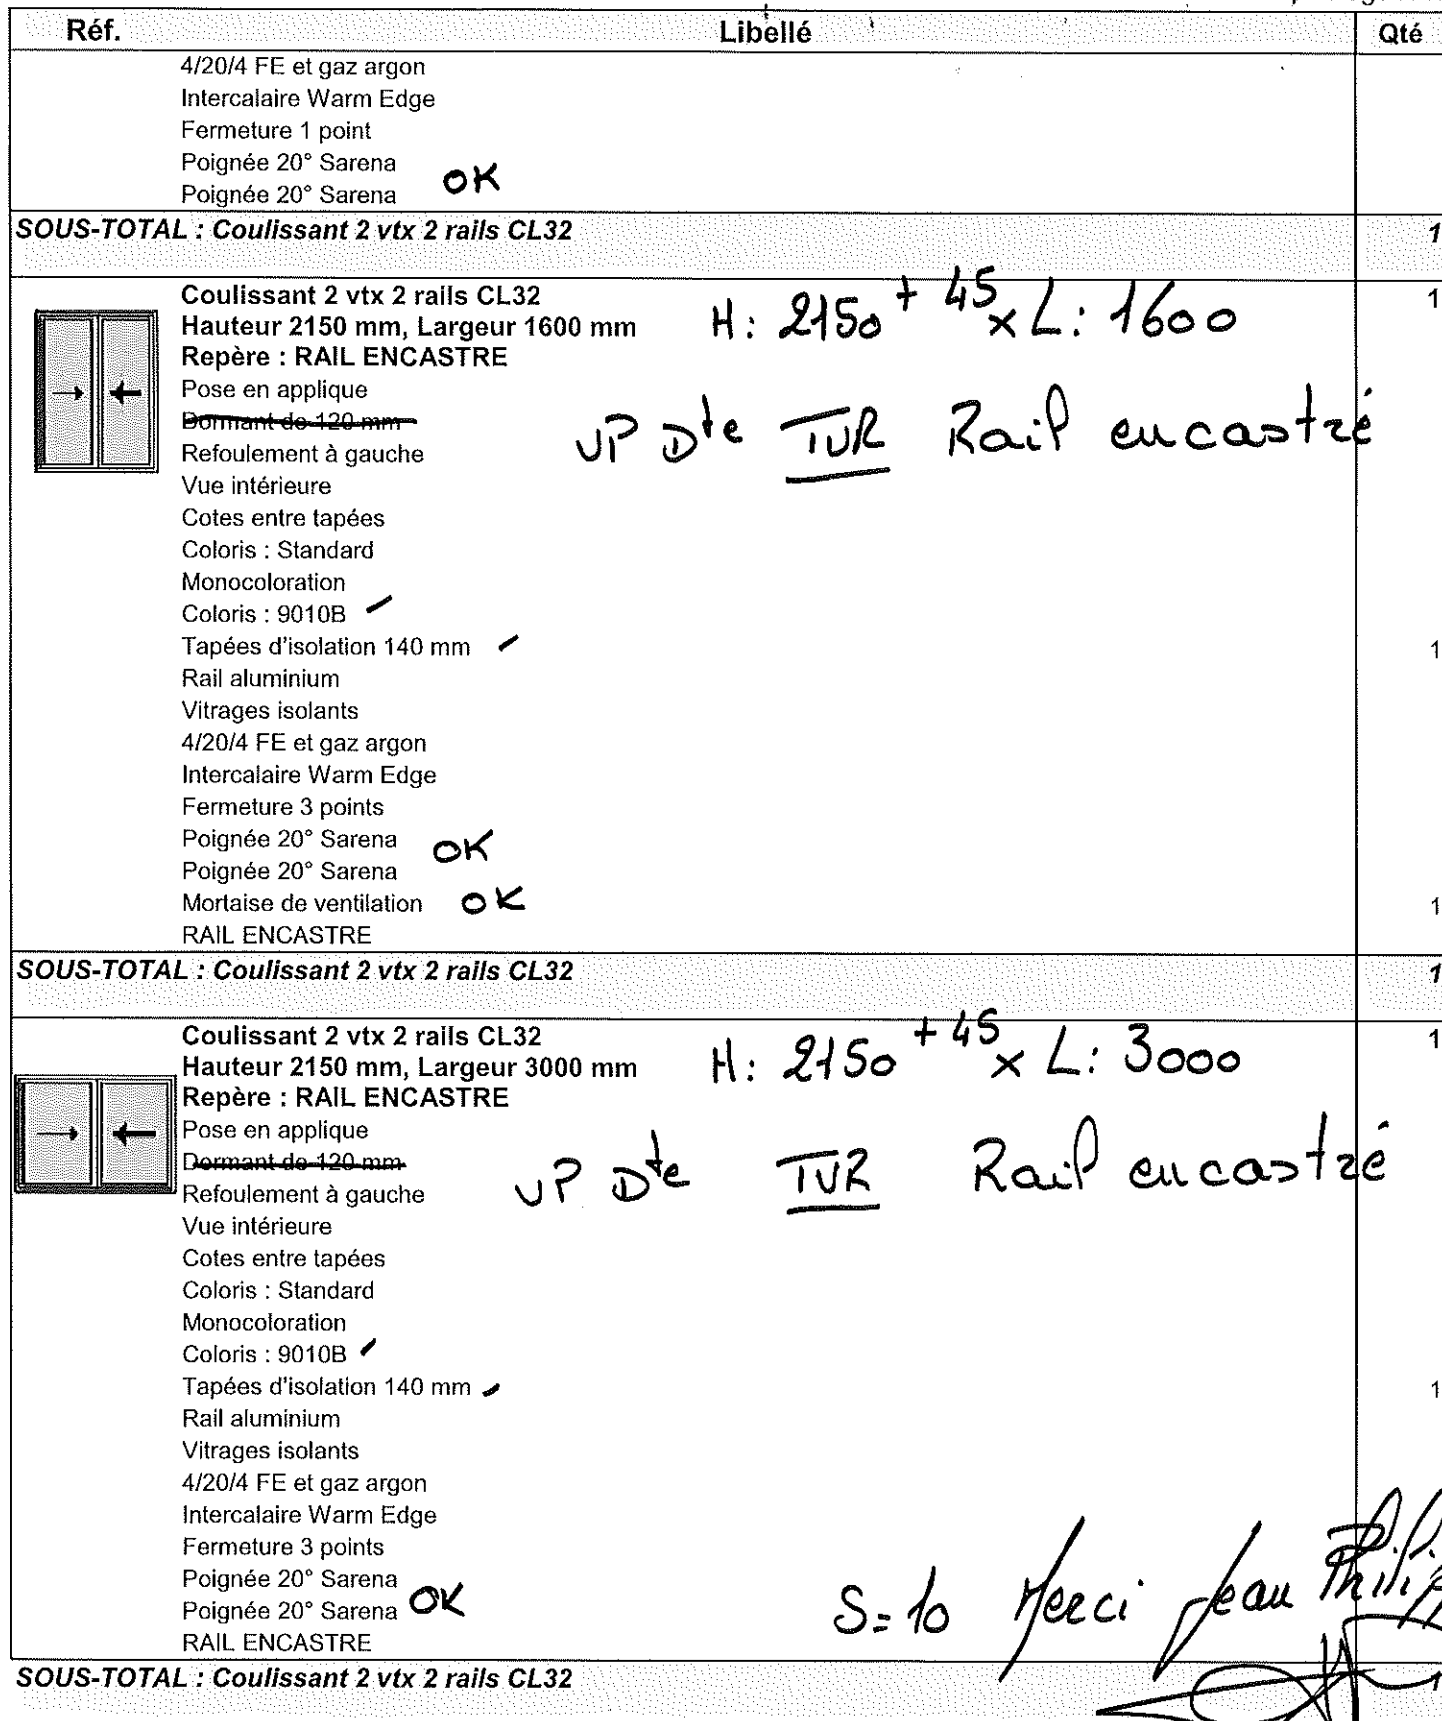 Réf. Libellé Qté
4/20/4 FE et gaz argon
Intercalaire Warm Edge
Fermeture 1 point
Poignée 20° Sarena
OK
Poignée 20° Sarena
SOUS-TOTAL : Coulissant 2 vtx 2 rails CL32 1
Coulissant 2 vtx 2 rails CL32 1
Hauteur 2150 mm, Largeur 1600 mm H: 2150 + 45 x L: 1600
Repère : RAIL ENCASTRE
Pose en applique
Dormant de 120 mm
VP Dte TVR Rail encastré
Refoulement à gauche
Vue intérieure
Cotes entre tapées
Coloris : Standard
Monocoloration
Coloris : 9010B
Tapées d'isolation 140 mm 1
Rail aluminium
Vitrages isolants
4/20/4 FE et gaz argon
Intercalaire Warm Edge
Fermeture 3 points
Poignée 20° Sarena OK
Poignée 20° Sarena
Mortaise de ventilation OK 1
RAIL ENCASTRE
SOUS-TOTAL : Coulissant 2 vtx 2 rails CL32 1
Coulissant 2 vtx 2 rails CL32 1
Hauteur 2150 mm, Largeur 3000 mm H: 2150 + 45 x L: 3000
Repère : RAIL ENCASTRE
Pose en applique
Dormant de 120 mm
Refoulement à gauche VP Dte TVR Rail encastré
Vue intérieure
Cotes entre tapées
Coloris : Standard
Monocoloration
Coloris : 9010B
Tapées d'isolation 140 mm 1
Rail aluminium
Vitrages isolants
4/20/4 FE et gaz argon
Intercalaire Warm Edge
Fermeture 3 points
Poignée 20° Sarena
Poignée 20° Sarena OK S=10 Merci Jean
RAIL ENCASTRE
SOUS-TOTAL : Coulissant 2 vtx 2 rails CL32 1